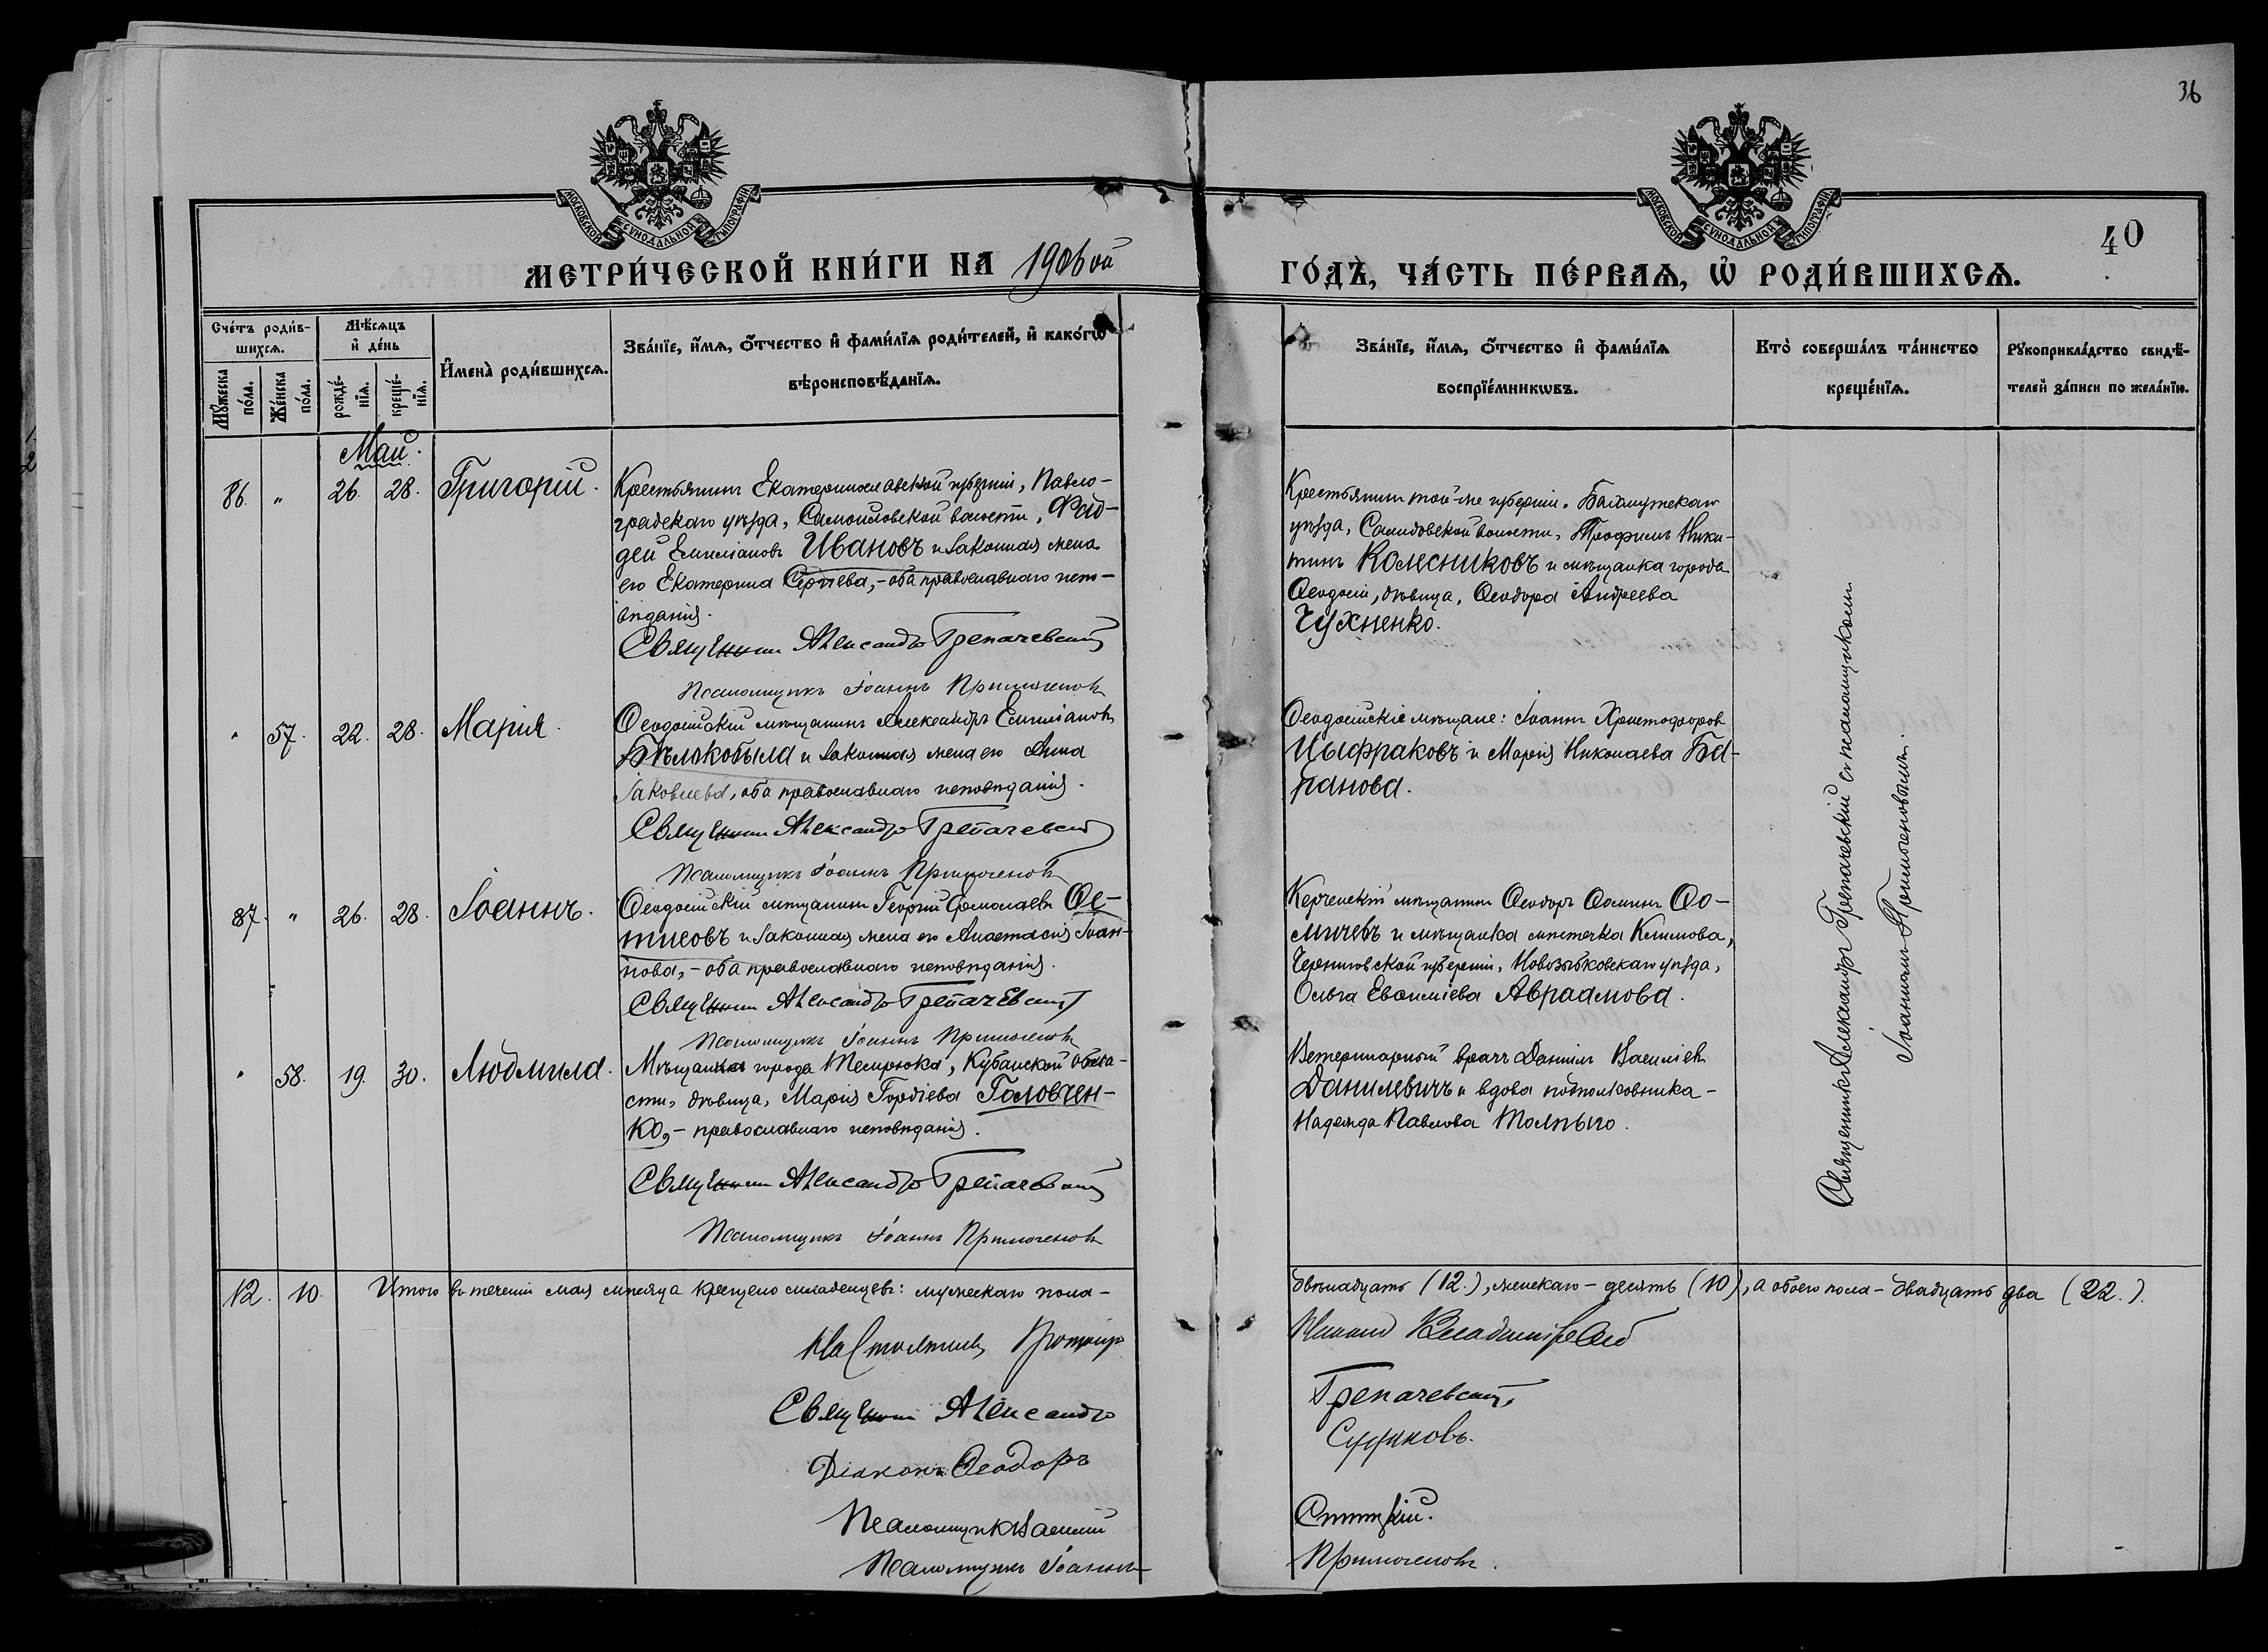 36
МОСКОВСКОЙ СѴНОДАЛЬНОЙ ТИПОГРАФІИ
МОСКОВСКОЙ СѴНОДАЛЬНОЙ ТИПОГРАФІИ
40
МЕТРИ́ЧЕСКОЙ КНИ́ГИ НА 1906 ой
ГО́ДЪ, ЧА́СТЬ ПЕ́РВАѦ, Ѡ҆ РОДИ́ВШИХСѦ.
Сче́тъ роди́в-
шихсѧ.
Мѹ́жеска по́ла.
Же́нска по́ла.
Мѣ́сѧцъ и҆ де́нь
рожде́-
нїѧ.
креще́-
нїѧ.
И҆мена̀ роди́вшихсѧ.
Зва́нїе, и҆́мѧ, ѻ҆́тчество и҆ фами́лїѧ роди́телей, и҆ како́гѡ
вѣроисповѣ́данїѧ.
Зва́нїе, и҆́мѧ, ѻ҆́тчество и҆ фами́лїѧ
воспрїе́мникѡвъ.
Кто̀ соверша́лъ та́инство
креще́нїѧ.
Рѹкоприкла́дство свидѣ́-
телей за́писи по жела́нїю.
Май.
86. " 26. 28. Григорій.
Крестьянинъ Екатеринославской губерніи, Павло-
градскаго уѣзда, Самойловской волости, Фад-
дей Емиліановъ Ивановъ и законная жена
его Екатерина Сергіева, - оба православнаго испо-
вѣданія.
Священникъ Александръ Грепачевскій
Псаломщикъ Іоаннъ Примоченовъ
Крестьянинъ той-же губерніи, Бахмутскаго
уѣзда, волости, Трофимъ Ники-
тинъ Колесниковъ и мѣщанка города
Ѳеодосіи, дѣвица, Ѳеодора Андреева
Чухненко.
" 57. 22. 28. Марія.
Ѳеодосійскій мѣщанинъ Александръ Емиліановъ
Бѣлокобыла и законная жена его Анна
Іаковлева, оба православнаго исповѣданія.
Священникъ Александръ Грепачевскій
Псаломщикъ Іоаннъ Примоченовъ
Ѳеодосійскіе мѣщане: Іоаннъ Христофоровъ
Цыфраковъ и Марія Николаева Ба-
ранова.
87. " 26. 28. Іоаннъ.
Ѳеодосійскій мѣщанинъ Георгій Ѳе-
тисовъ и законная жена его Анастасія Іоан-
нова, - оба православнаго исповѣданія.
Священникъ Александръ Грепачевскій
Псаломщикъ Іоаннъ Примоченовъ
Керченскій мѣщанинъ Ѳеодоръ Ѳоминъ Ѳо-
мичевъ и мѣщанка мѣстечка Климова,
Черниговской губерніи, Новозыбковскаго уѣзда,
Ольга Евѳиміева Авраамова.
" 58. 19. 30. Людмила.
Мѣщанка города Темрюка, Кубанской обла-
сти, дѣвица, Марія Гордіева Головчен-
ко, - православнаго исповѣданія.
Священникъ Александръ Грепачевскій
Псаломщикъ Іоаннъ Примоченовъ
Ветеринарный врачъ Даніилъ Василіевъ
Данилевичъ и вдова подполковника -
Надежда Павлова Толпыго.
Священникъ Александръ Грепачевскій съ псаломщикомъ
Іоанномъ Примоченовымъ.
12. 10. Итого въ теченіи мая мѣсяца крещено младенцевъ: мужескаго пола - двѣнадцать (12.), женскаго - десять (10), а обоего пола - двадцать два (22.).
Настоятель Протоіер
Священникъ Александръ Грепачевскій.
Діаконъ Ѳеодоръ Сушковъ.
Псаломщикъ Василій
Псаломщикъ Іоаннъ Примоченовъ.